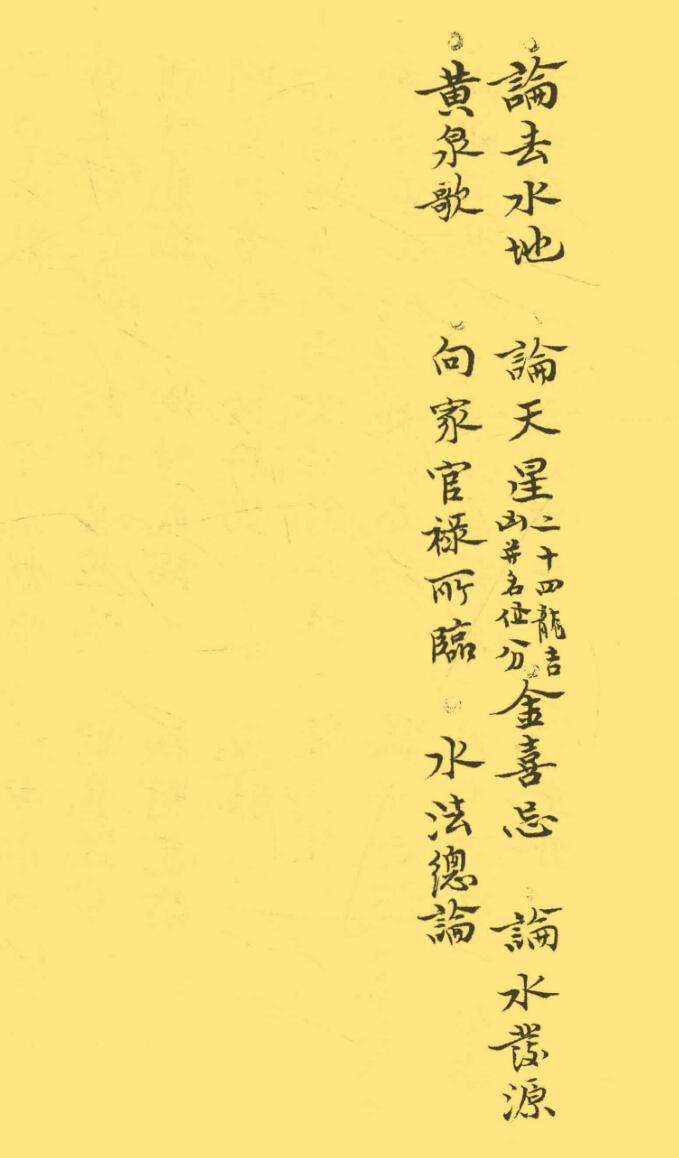 論去水地　論天星二十四龍吉凶并名位分金喜忌　論水發源
黄泉歌　向家官祿所臨　水法總論